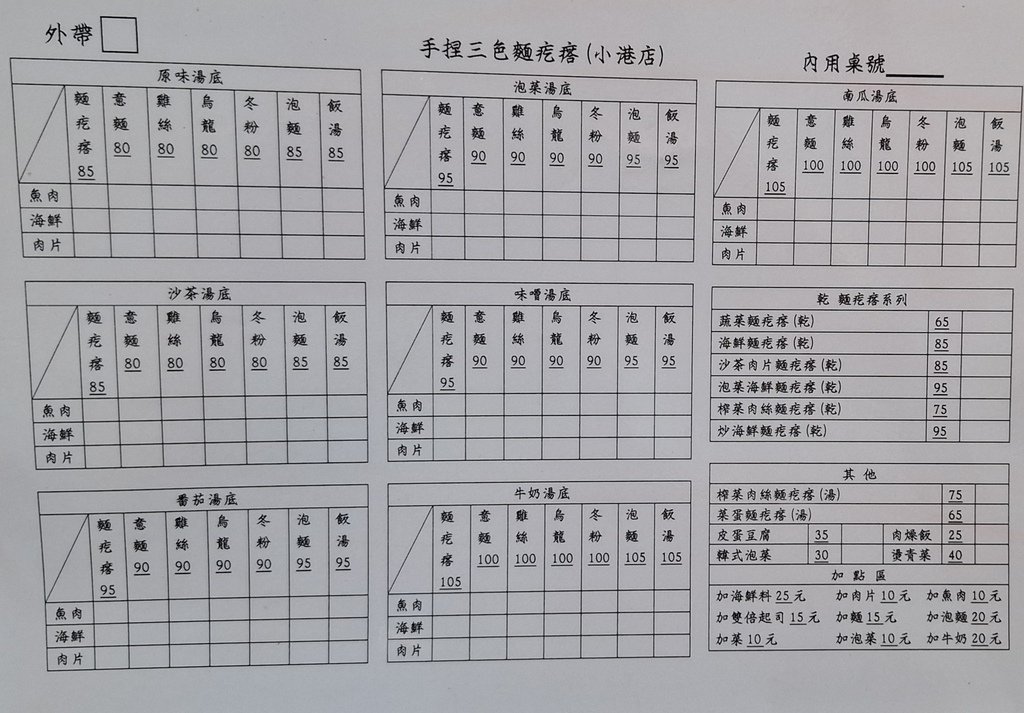 外帶
手捏三色麵疙瘩(小港店)
內用桌號
原味湯底
麵疙瘩 85 意麵 80 雞絲 80 烏龍 80 冬粉 80 泡麵 85 飯湯 85
魚肉
海鮮
肉片
泡菜湯底
麵疙瘩 95 意麵 90 雞絲 90 烏龍 90 冬粉 90 泡麵 95 飯湯 95
魚肉
海鮮
肉片
南瓜湯底
麵疙瘩 105 意麵 100 雞絲 100 烏龍 100 冬粉 100 泡麵 105 飯湯 105
魚肉
海鮮
肉片
沙茶湯底
麵疙瘩 85 意麵 80 雞絲 80 烏龍 80 冬粉 80 泡麵 85 飯湯 85
魚肉
海鮮
肉片
味噌湯底
麵疙瘩 95 意麵 90 雞絲 90 烏龍 90 冬粉 90 泡麵 95 飯湯 95
魚肉
海鮮
肉片
乾 麵疙瘩系列
蔬菜麵疙瘩(乾) 65
海鮮麵疙瘩(乾) 85
沙茶肉片麵疙瘩(乾) 85
泡菜海鮮麵疙瘩(乾) 95
榨菜肉絲麵疙瘩(乾) 75
炒海鮮麵疙瘩(乾) 95
番茄湯底
麵疙瘩 95 意麵 90 雞絲 90 烏龍 90 冬粉 90 泡麵 95 飯湯 95
魚肉
海鮮
肉片
牛奶湯底
麵疙瘩 105 意麵 100 雞絲 100 烏龍 100 冬粉 100 泡麵 105 飯湯 105
魚肉
海鮮
肉片
其他
榨菜肉絲麵疙瘩(湯) 75
菜蛋麵疙瘩(湯) 65
皮蛋豆腐 35 肉燥飯 25
韓式泡菜 30 燙青菜 40
加點區
加海鮮料25元 加肉片10元 加魚肉10元
加雙倍起司15元 加麵15元 加泡麵20元
加菜10元 加泡菜10元 加牛奶20元